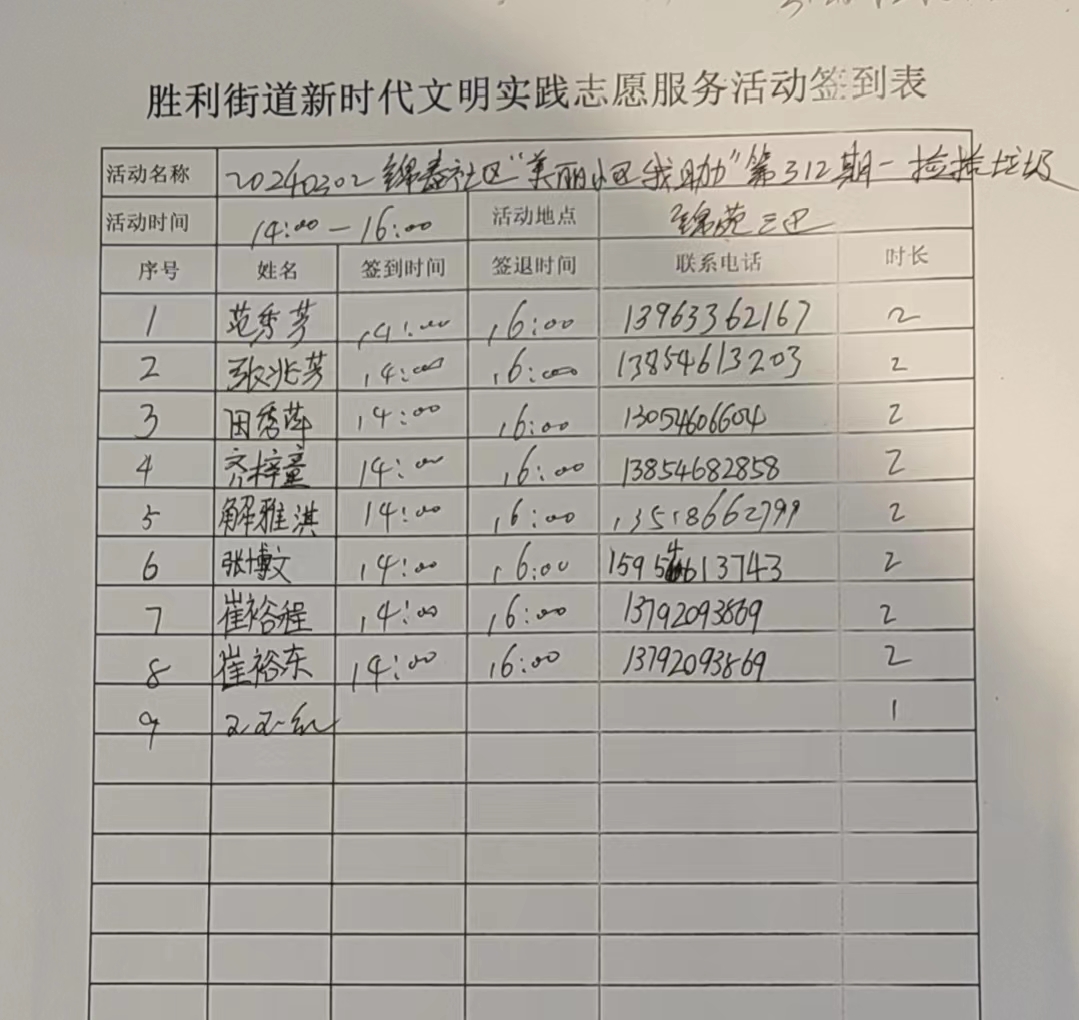 胜利街道新时代文明实践志愿服务活动签到表
活动名称 20240302锦泰社区“美丽小区我助”第312期-捡拾垃圾
活动时间 14:00-16:00 活动地点 锦苑三区
序号 姓名 签到时间 签退时间 联系电话 时长
1 范秀芳 14:00 16:00 13963362167 2
2 张兆芳 14:00 16:00 13854613203 2
3 田秀萍 14:00 16:00 13054606604 2
4 齐梓童 14:00 16:00 13854682858 2
5 解雅淇 14:00 16:00 13518662799 2
6 张博文 14:00 16:00 15954613743 2
7 崔裕程 14:00 16:00 13792093869 2
8 崔裕东 14:00 16:00 13792093869 2
9 1